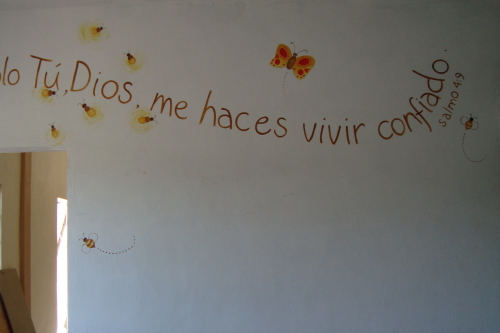 lo Tú, Dios, me haces vivir confiado.
salmo 4:9